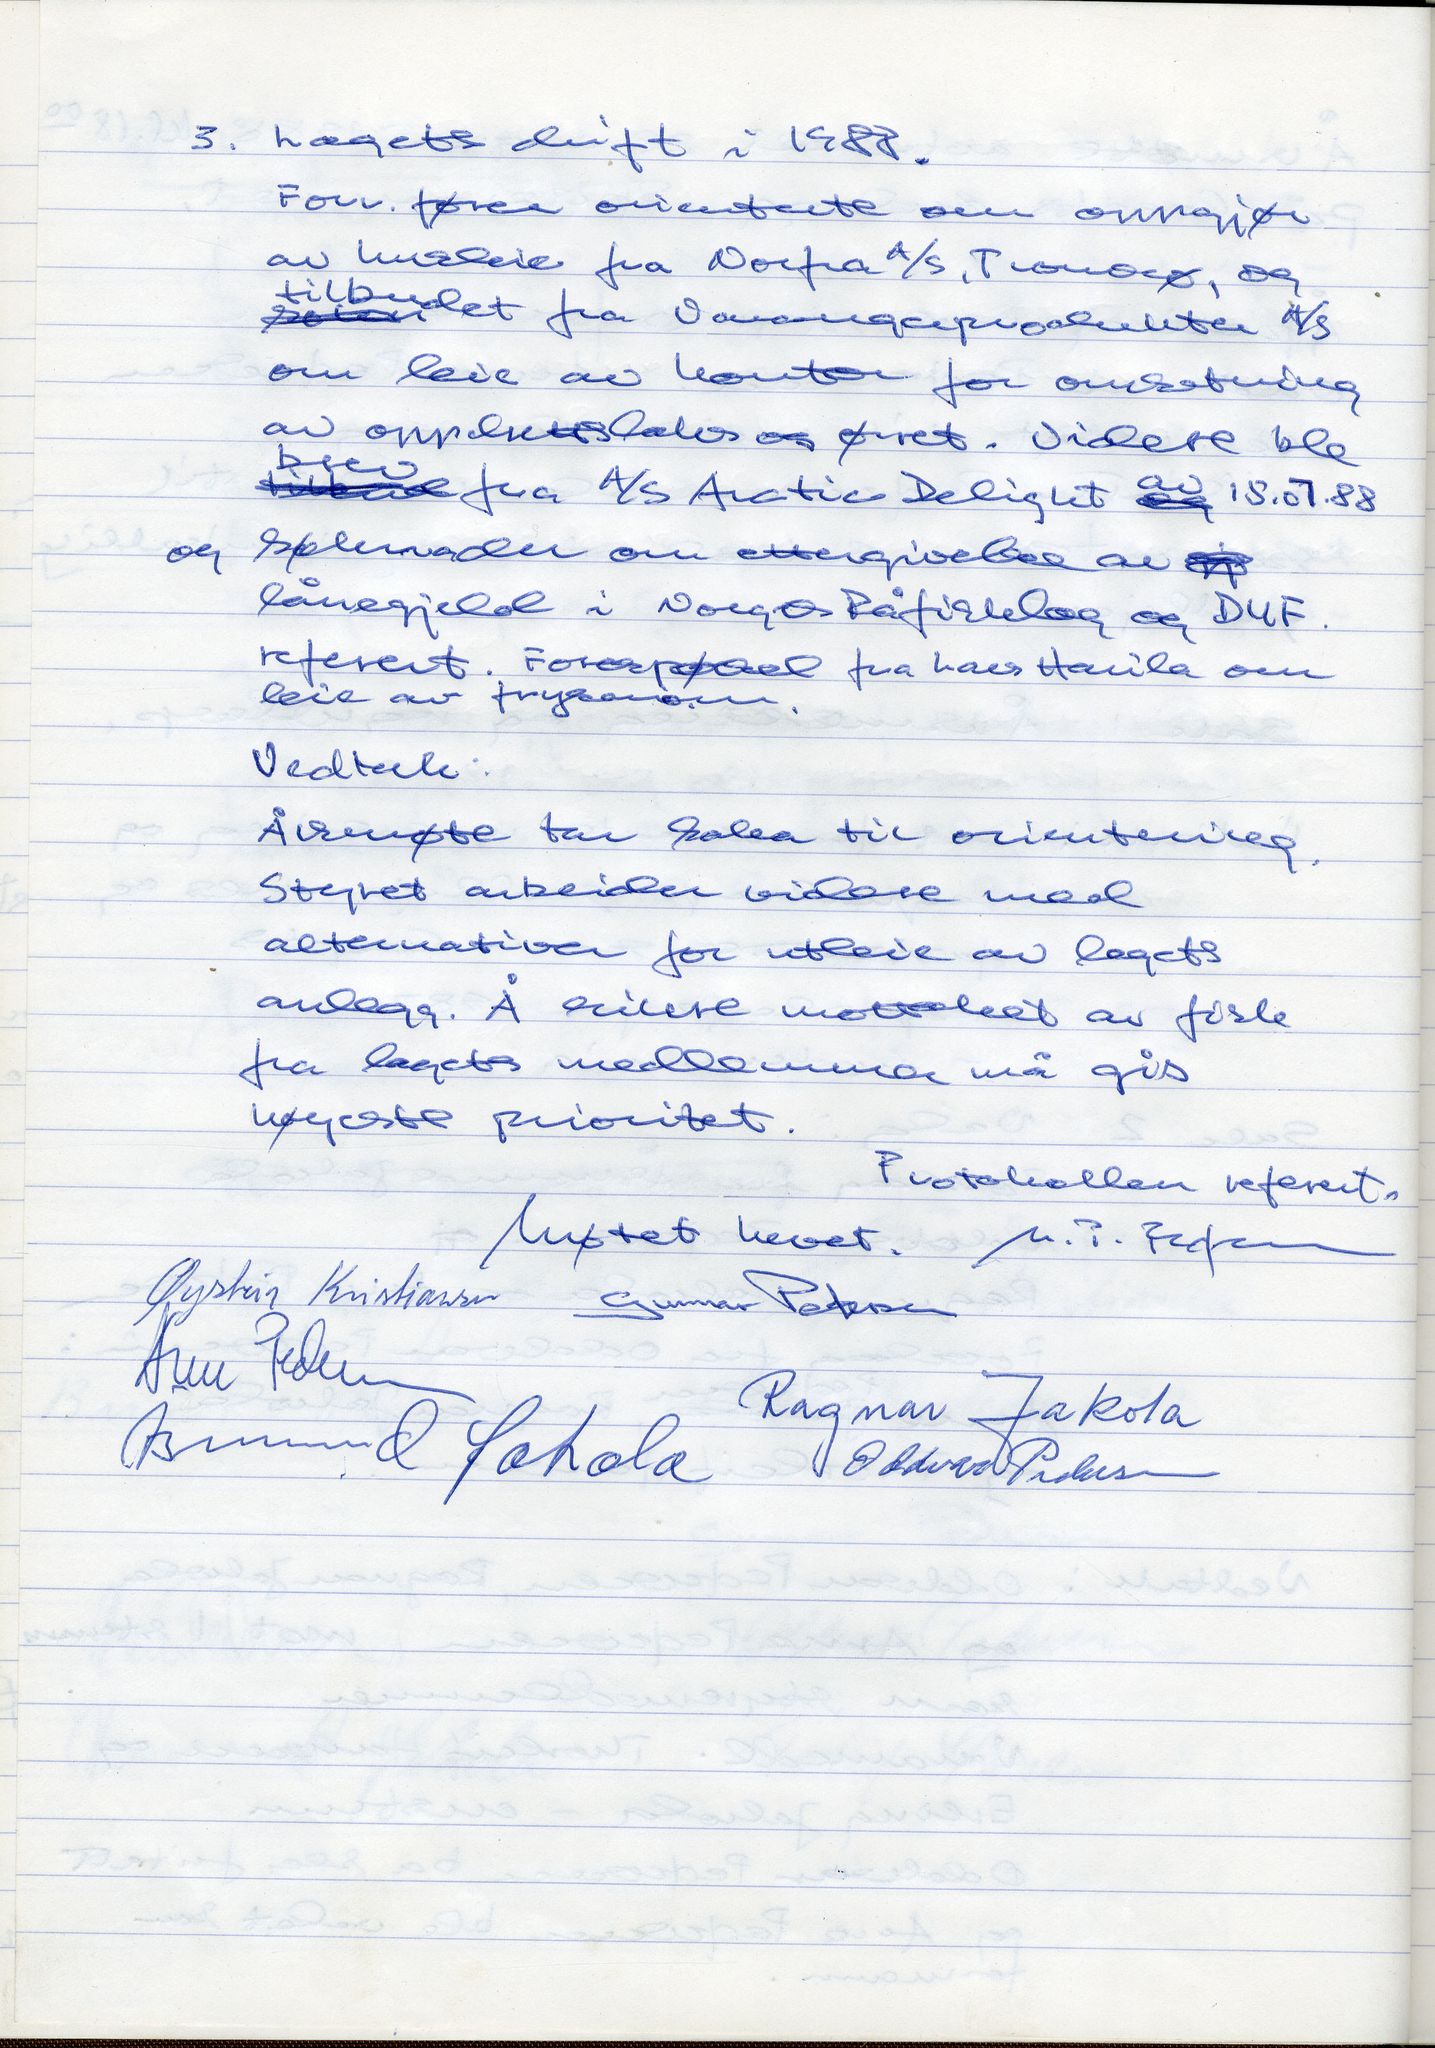 3. Lagets drift i 1988.
Forr. fører orienterte om oppgjør
av husleie fra Norfra A/S, Tromsø, og
tilbudet fra Varangerprodukter A/S
om leie av kontor for omsetning
av oppdrettslaks og ørret. Videre ble
brev fra A/S Arctic Delight av 18.07.88
og søknader om ettergivelse av
lånegjeld i Norges Råfisklag og DUF.
referert. Forespørsel fra Lars Havila om
leie av fryserom.
Vedtak:
Årsmøte tar saka til orientering.
Styret arbeider videre med
alternativer for utleie av lagets
anlegg. Å sikre mottaket av fisk
fra lagets medlemmer må gis
høyeste prioritet.
Protokollen referert.
Møtet hevet.
Øystein Kristiansen Gunnar Pedersen
Arne Pedersen
Ragnar Jakola
Asmund Jakola
Oddvar Pedersen